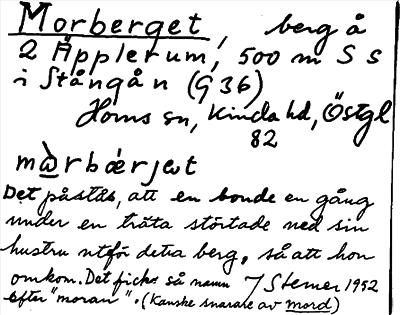 Morberget, berg å
2 Äpplerum, 500 m S S
i Stångån (G 36)
Horns sn, Kinda hd, Östgl
82
mωrbǽrjət
Det påstås, att en bonde en gång
under en träta störtade ned sin
hustru utför detta berg, så att hon
omkom. Det fick så namn
efter "moran". (Kanske snarare av mord)
J Stemer 1952